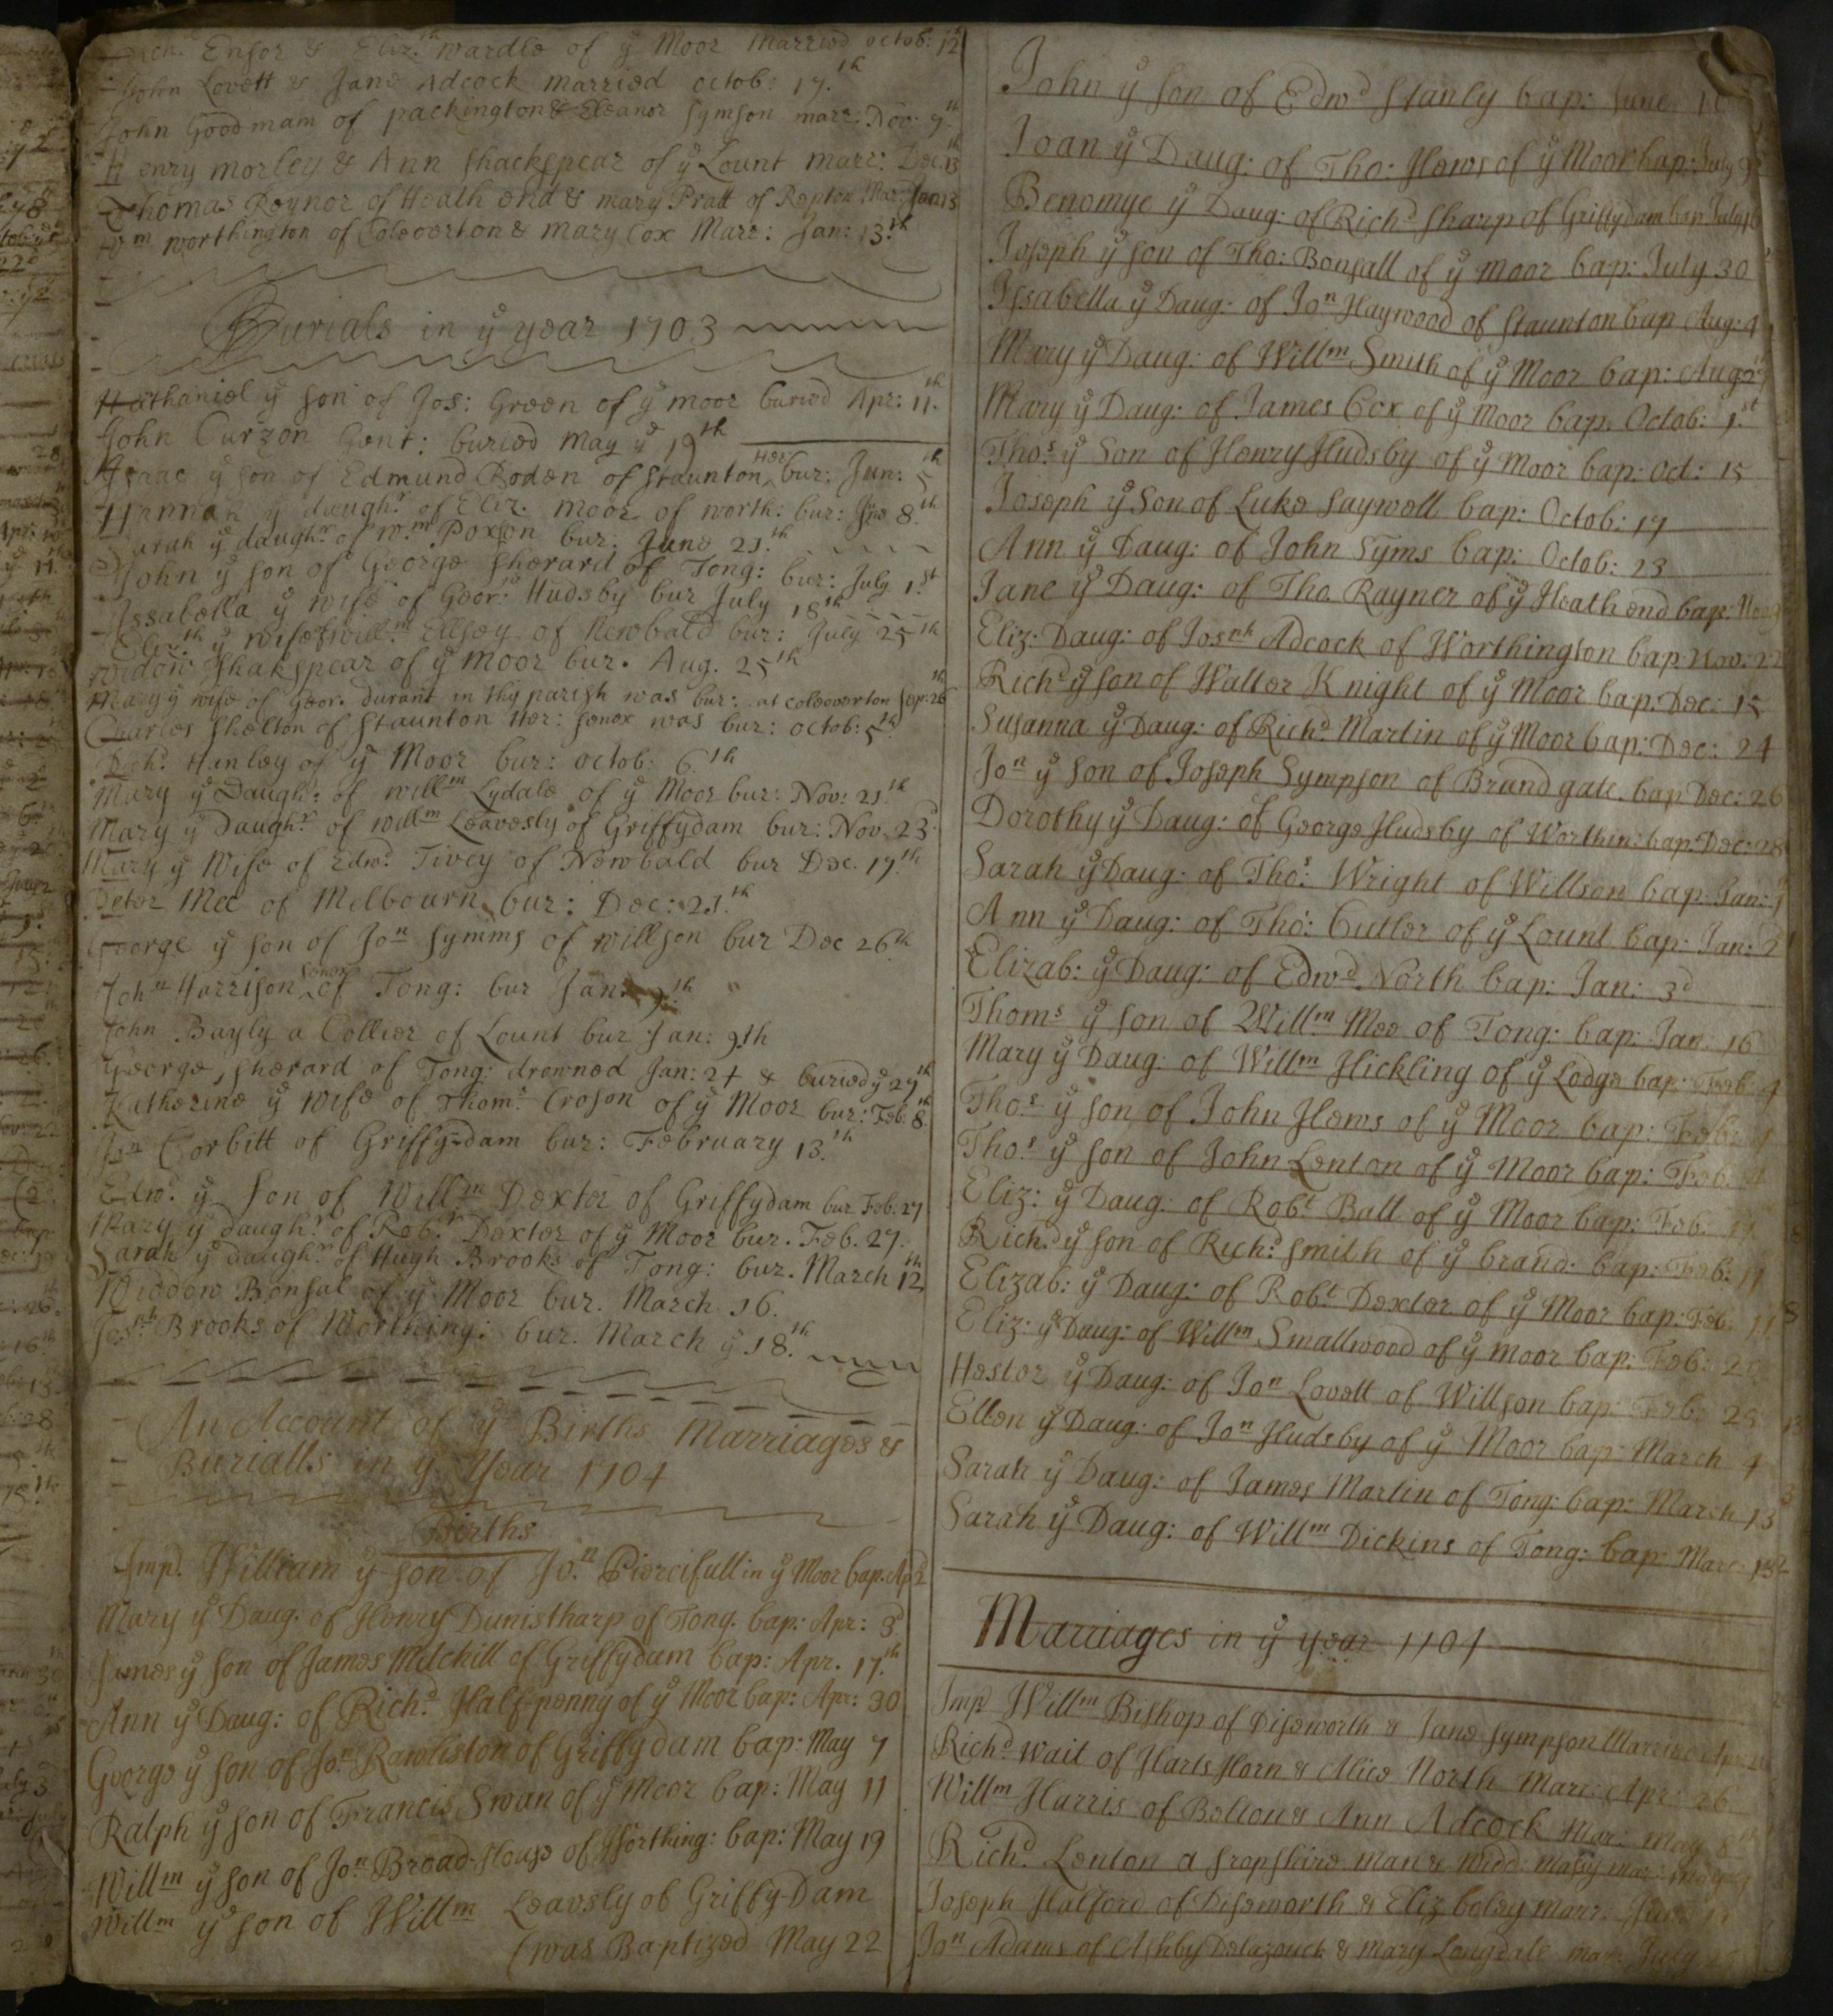 Rich.d Ensor & Eliz.th wardle of ye Moor Married octob: 12th
John Lovett & Jane Adcock married octob: 17.th
John Goodmam of packington & Eleanor Symson marr: Nov: 9th
Henry morley & Ann Shackspear of ye Lount marr: Dec. 13th
Thomas Roynor of Heath end & mary Pratt of Repton Mar: Jan 13
Wm worthington of Coleoverton & Mary Cox Marr: Jan: 13.th
Burials in ye year 1703
Nathaniel ye son of Jos: Green of ye moor buried Apr: 11.th
John Curzon Gent: buried may ye 19th
Isaac ye son of Edmund Roden of Staunton Har: bur: Jun: 5th
Hannah ye daugh.r of Eliz. moor of worth: bur: Jue 8.th
Sarah ye daugh.r of Wm Poxson bur: June 21.th
John ye son of George Sherard of Tong: bur: July 1.st
Issabella ye wife of Geor: Hudsby bur July 18th
Eliz.th ye wife of will.m Ellsey of Newbald bur: July 25th
Widow Shakspear of ye moor bur. Aug. 25th
Mary ye wife of Geor. Durant in thy parish was bur: at coleoverton Sep: 26th
Charles Shelton of Staunton Har: Senex was bur: octob: 5th
Rich.d Hanley of ye Moor bur: octob: 6.th
Mary ye Daugh.r of willm Lydale of ye Moor bur: Nov: 21.th
Mary ye Daugh.r of willm Leavesly of Griffydam bur: Nov. 23d
Mary ye Wife of Edw.d Tivey of Newbald bur Dec. 17.th
Peter Mee of Melbourn bur: Dec: 21.th
George ye son of Jon Symms of willson bur Dec 26.th
John Harrison Senex of Tong: bur Jan: 9.th
John Bayly a Collier of Lount bur Jan: 9th
George Sherard of Tong: drowned Jan: 24 & buried ye 27th
Katherine ye Wife of Thom.s Croson of ye Moor bur: Feb. 8.th
Jon Corbitt of Griffy-dam bur: February 13.th
Edw.d ye Son of Willm Dexter of Griffydam bur Feb. 27
Mary ye daugh.r of Rob.t Dexter of ye Moor bur. Feb. 27.
Sarah ye daugh.r of Hugh Brooks of Tong: bur. March 12th
Widdow Bonsal of ye Moor bur. March 16.
Josph Brooks of Worthing: bur. March ye 18.th
An Account of ye Births Marriages &
Burialls in ye Year 1704
Births
Imp. William ye son of Jo.n Piercifull in ye Moor bap. Ap 2
Mary ye Daug. of Henry Dunistharp of Tong. bap: Apr: 3d
James ye son of James Mitchill of Griffydam bap: Apr. 17.th
Ann ye Daug: of Rich.d Half-penny of ye Moor bap: Apr: 30
George ye son of Jo.n Rawliston of Griffydam bap: May 7
Ralph ye son of Francis Swan of ye Moor bap: May 11
Willm ye son of Jon Broad-House of Worthing: bap: May 19
Willm ye son of Willm Leavsly of Griffy-Dam
(was Baptized May 22
John ye son of Edwd Stanly bap: June
Joan ye Daug: of Tho: Hews of ye Moor bap: July
Benomye ye Daug: of Richd Sharp of Griffydam bap. July
Joseph ye son of Tho: Bonsall of ye moor bap: July 30
Issabella ye Daug: of Jon Haywood of Staunton bap Aug: 4
Mary ye Daug: of Willm Smith of ye Moor bap: Aug
Mary ye Daug: of James Cox of ye Moor bap. Octob: 1.st
Tho.s ye Son of Henry Hudsby of ye Moor bap: Oct: 15
Joseph ye Son of Luke Saywell bap: Octob: 17
Ann ye Daug: of John Syms bap: Octob: 23
Jane ye Daug: of Tho Rayner of ye Heath end bap: Nov
Eliz: Daug: of Josph Adcock of Worthington bap Nov: 22
Richd ye son of Walter Knight of ye Moor bap: Dec: 15
Susanna ye Daug: of Richd Martin of ye Moor bap: Dec: 24
Jon ye son of Joseph Sympson of Brand gate. bap Dec: 26
Dorothy ye Daug: of George Hudsby of Worthin: bap: Dec: 28
Sarah ye Daug: of Tho.s Wright of Willson bap: Jan: 1
Ann ye Daug: of Tho: Cutler of ye Lount bap: Jan: 2
Elizab: ye Daug: of Edwd North bap: Jan: 3d
Thoms ye son of Willm Mee of Tong: bap: Jan: 16
Mary ye Daug: of Willm Hickling of ye Lodge bap: Feb: 4
Tho.s ye son of John Hews of ye Moor bap: Feb: 4
Tho.s ye son of John Lenton of ye Moor bap: Feb: 4
Eliz: ye Daug: of Rob.t Ball of ye Moor bap: Feb: 11
Rich.d ye son of Rich.d Smith of ye brand. bap: Feb: 11
Elizab: ye Daug: of Rob.t Dexter of ye Moor bap: Feb. 11
Eliz: ye Daug: of Willm Smallwood of ye moor bap: Feb: 2
Hester ye Daug: of Jon Lovett of Willson bap: Feb: 25
Ellen ye Daug: of Jon Hudsby of ye Moor bap: March 4
Sarah ye Daug: of James Martin of Tong: bap: March 13
Sarah ye Daug: of Willm Dickins of Tong: bap: Marc: 13
Marriages in ye year 1704
Imp Willm Bishop of Disworth & Jane Sympson Married Apr
Richd Wait of Hartshorn & Alice North Marr: Apr: 26
Willm Harris of Belton & Ann Adcock Mar: May 8th
Rich.d Lenton a Sropshire man & Widd: Massy mar: May
Joseph Halford of Disworth & Eliz boley marr: June
Jon Adams of Ashby Delazouch & Mary Longdale marr July